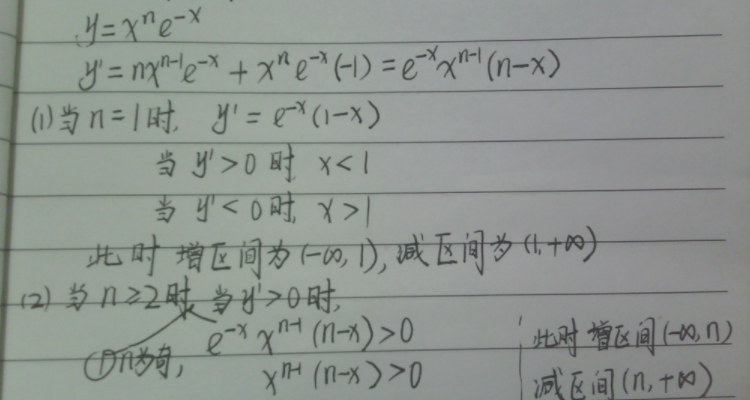 y=xⁿe⁻ˣ
y'=nxⁿ⁻¹e⁻ˣ+xⁿe⁻ˣ(-1)=e⁻ˣxⁿ⁻¹(n-x)
(1)当n=1时, y'=e⁻ˣ(1-x)
当y'>0时 x<1
当y'<0时, x>1
此时 增区间为(-∞,1),减区间为(1,+∞)
(2)当n≥2时 当y'>0时,
e⁻ˣxⁿ⁻¹(n-x)>0
①n为奇,
xⁿ⁻¹(n-x)>0
此时增区间(-∞,n)
减区间(n,+∞)